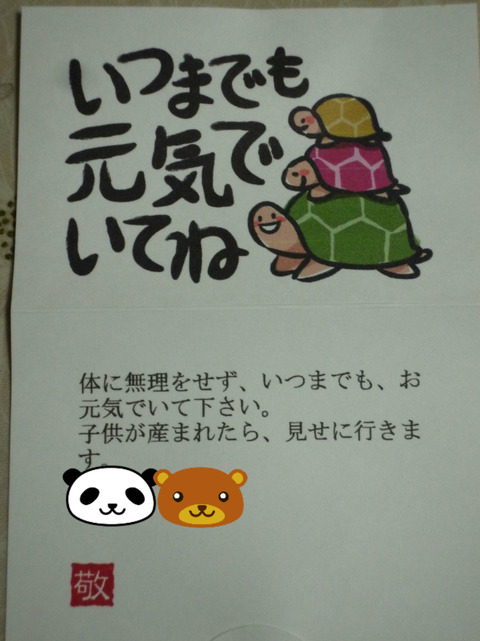 いつまでも
元気で
いてね
体に無理をせず、いつまでも、お
元気でいて下さい。
子供が産まれたら、見せに行きま
す。
敬